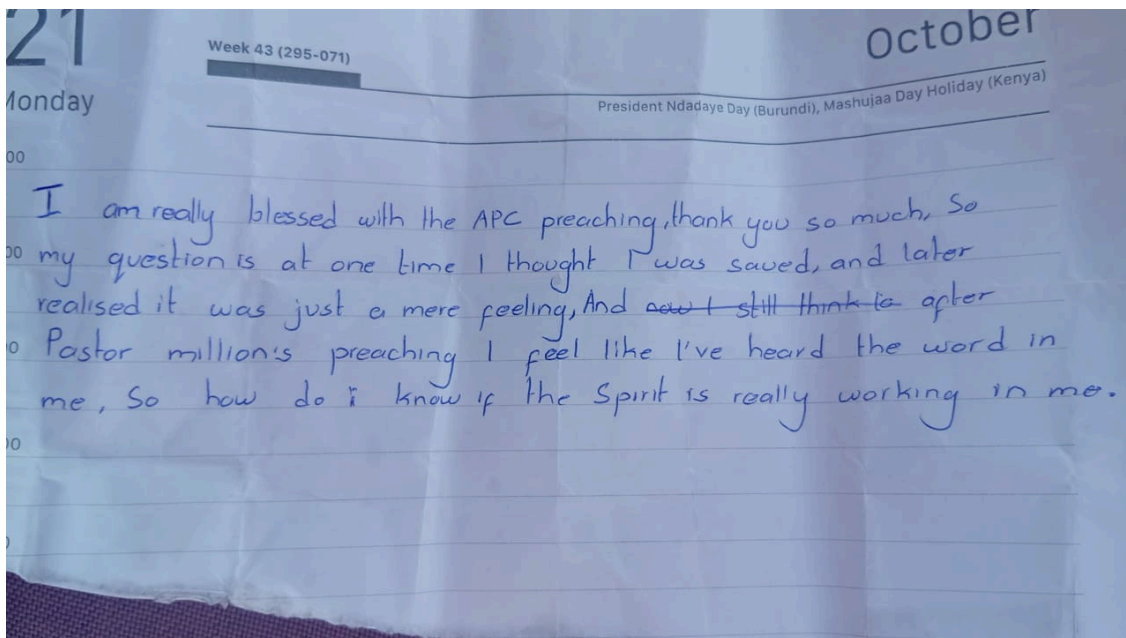 21
October
Week 43 (295-071)
Monday
President Ndadaye Day (Burundi), Mashujaa Day Holiday (Kenya)
00
I am really blessed with the APC preaching, thank you so much, So
00
my question is at one time I thought I was saved, and later
realised it was just a mere feeling, And now I still think is after
0
Pastor million's preaching I feel like I've heard the word in
me, So how do i know if the Spirit is really working in me.
00